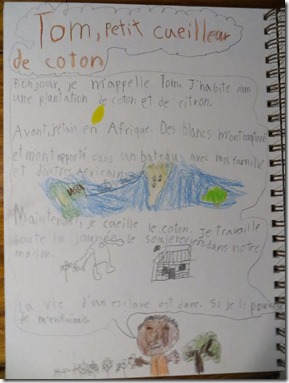 Tom, petit cueilleur
de coton
Bonjour, je m'appelle Tom. J'habite dans
une plantation de coton et de citron.
Avant, j'étais en Afrique. Des blancs m'ont capturé
et m'ont apporté dans un bateau, avec ma famille
et d'autres africains.
Maintenant, je cueille le coton. Je travaille
toute la journée, le soir dans notre
maison.
La vie d'un esclave est dure. Si je le pouvais
je m'enfuirais